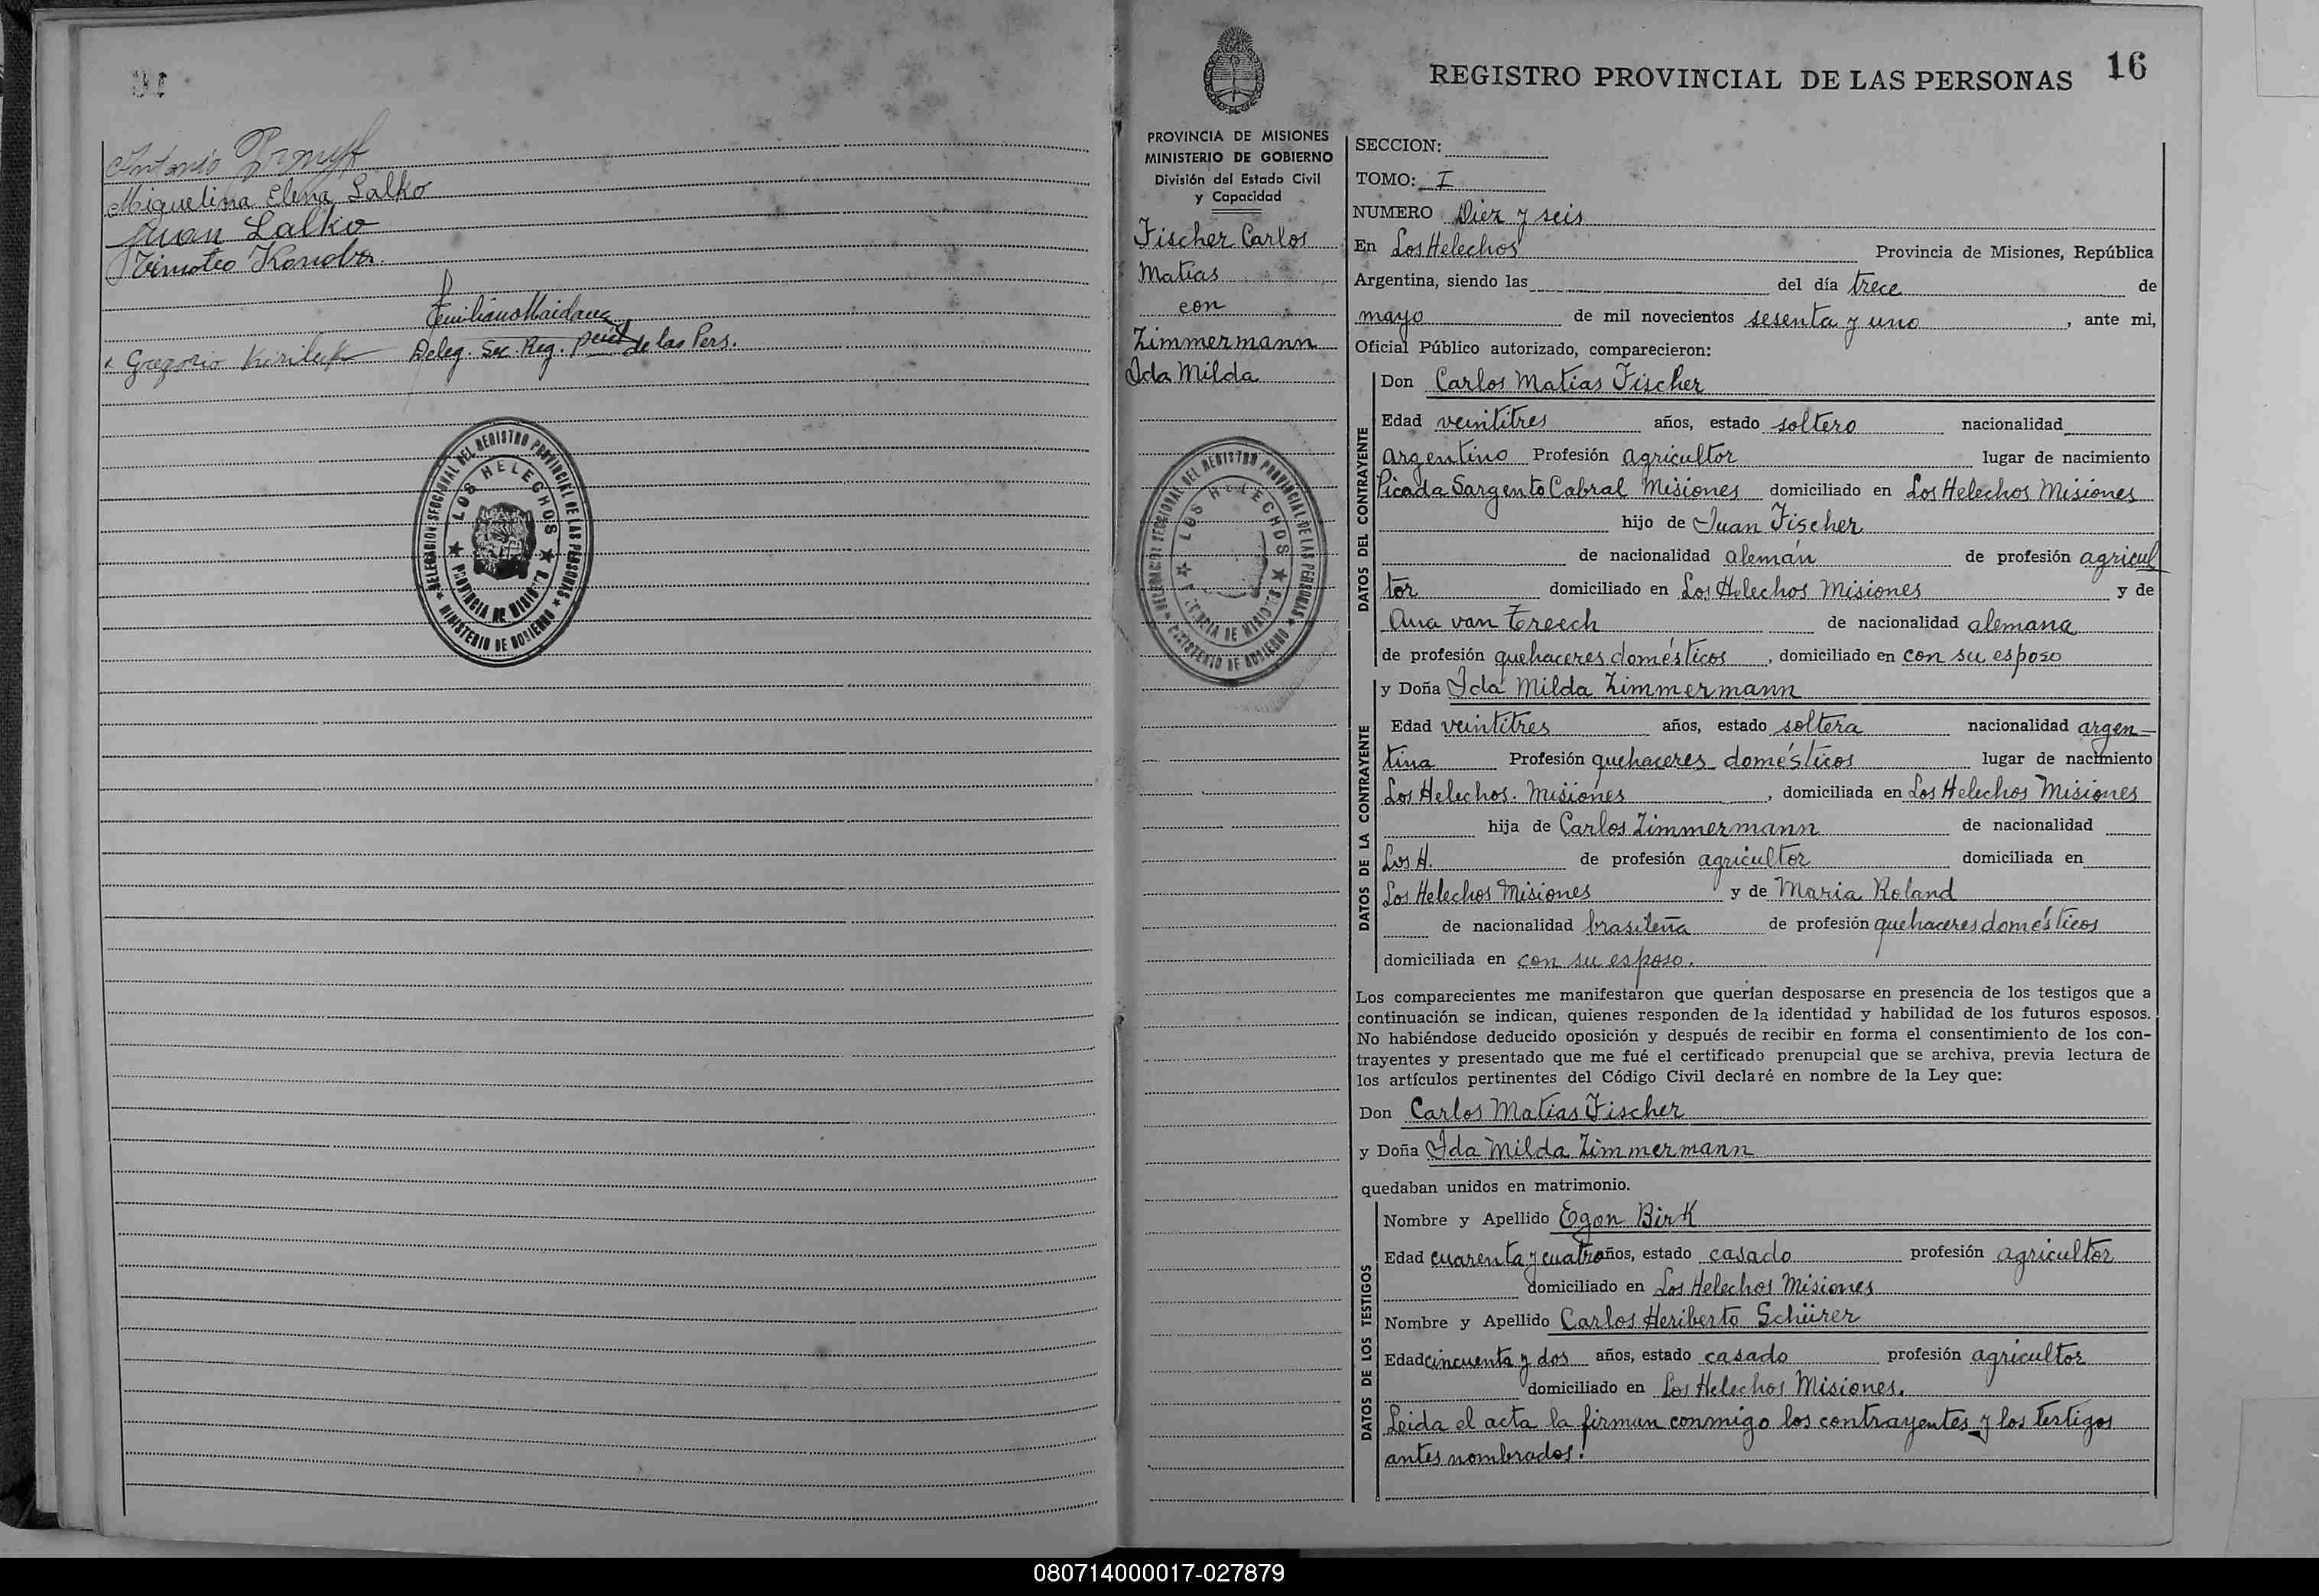 Antonio
Miguelina Elena Lalko
Juan Lalko
Timoteo
Emiliano Maidana
Gregorio Deleg. Sec. Reg. Pcial de las Pers.
DELEGACION SECCIONAL DEL REGISTRO PROVINCIAL DE LAS PERSONAS
LOS HELECHOS
PROVINCIA DE MISIONES
MINISTERIO DE GOBIERNO
PROVINCIA DE MISIONES
MINISTERIO DE GOBIERNO
División del Estado Civil
y Capacidad
Fischer Carlos
Matias
con
Zimmermann
Ida Milda
DELEGACION SECCIONAL DEL REGISTRO PROVINCIAL DE LAS PERSONAS
LOS HELECHOS
PROVINCIA DE MISIONES
MINISTERIO DE GOBIERNO
REGISTRO PROVINCIAL DE LAS PERSONAS 16
SECCION:
TOMO: I
NUMERO Diez y seis
En Los Helechos Provincia de Misiones, República
Argentina, siendo las del día trece de
mayo de mil novecientos sesenta y uno, ante mi,
Oficial Público autorizado, comparecieron:
DATOS DEL CONTRAYENTE
Don Carlos Matias Fischer
Edad veintitres años, estado soltero nacionalidad
argentino Profesión agricultor lugar de nacimiento
Picada Sargento Cabral Misiones domiciliado en Los Helechos Misiones
hijo de Juan Fischer
de nacionalidad alemán de profesión agricul
tor domiciliado en Los Helechos Misiones y de
Ana van de nacionalidad alemana
de profesión quehaceres domésticos, domiciliado en con su esposo
DATOS DE LA CONTRAYENTE
y Doña Ida Milda Zimmermann
Edad veintitres años, estado soltera nacionalidad argen-
tina Profesión quehaceres domésticos lugar de nacimiento
Los Helechos. Misiones, domiciliada en Los Helechos Misiones
hija de Carlos Zimmermann de nacionalidad
Los H. de profesión agricultor domiciliada en
Los Helechos Misiones y de Maria Roland
de nacionalidad brasileña de profesión quehaceres domésticos
domiciliada en con su esposo.
Los comparecientes me manifestaron que querían desposarse en presencia de los testigos que a
continuación se indican, quienes responden de la identidad y habilidad de los futuros esposos.
No habiéndose deducido oposición y después de recibir en forma el consentimiento de los con-
trayentes y presentado que me fué el certificado prenupcial que se archiva, previa lectura de
los artículos pertinentes del Código Civil declaré en nombre de la Ley que:
Don Carlos Matias Fischer
y Doña Ida Milda Zimmermann
quedaban unidos en matrimonio.
DATOS DE LOS TESTIGOS
Nombre y Apellido Egon Birk
Edad cuarenta y cuatro años, estado casado profesión agricultor
domiciliado en Los Helechos Misiones
Nombre y Apellido Carlos Heriberto Schürer
Edad cincuenta y dos años, estado casado profesión agricultor
domiciliado en Los Helechos Misiones.
Leida el acta la firman conmigo los contrayentes y los testigos
antes nombrados.
080714000017-027879